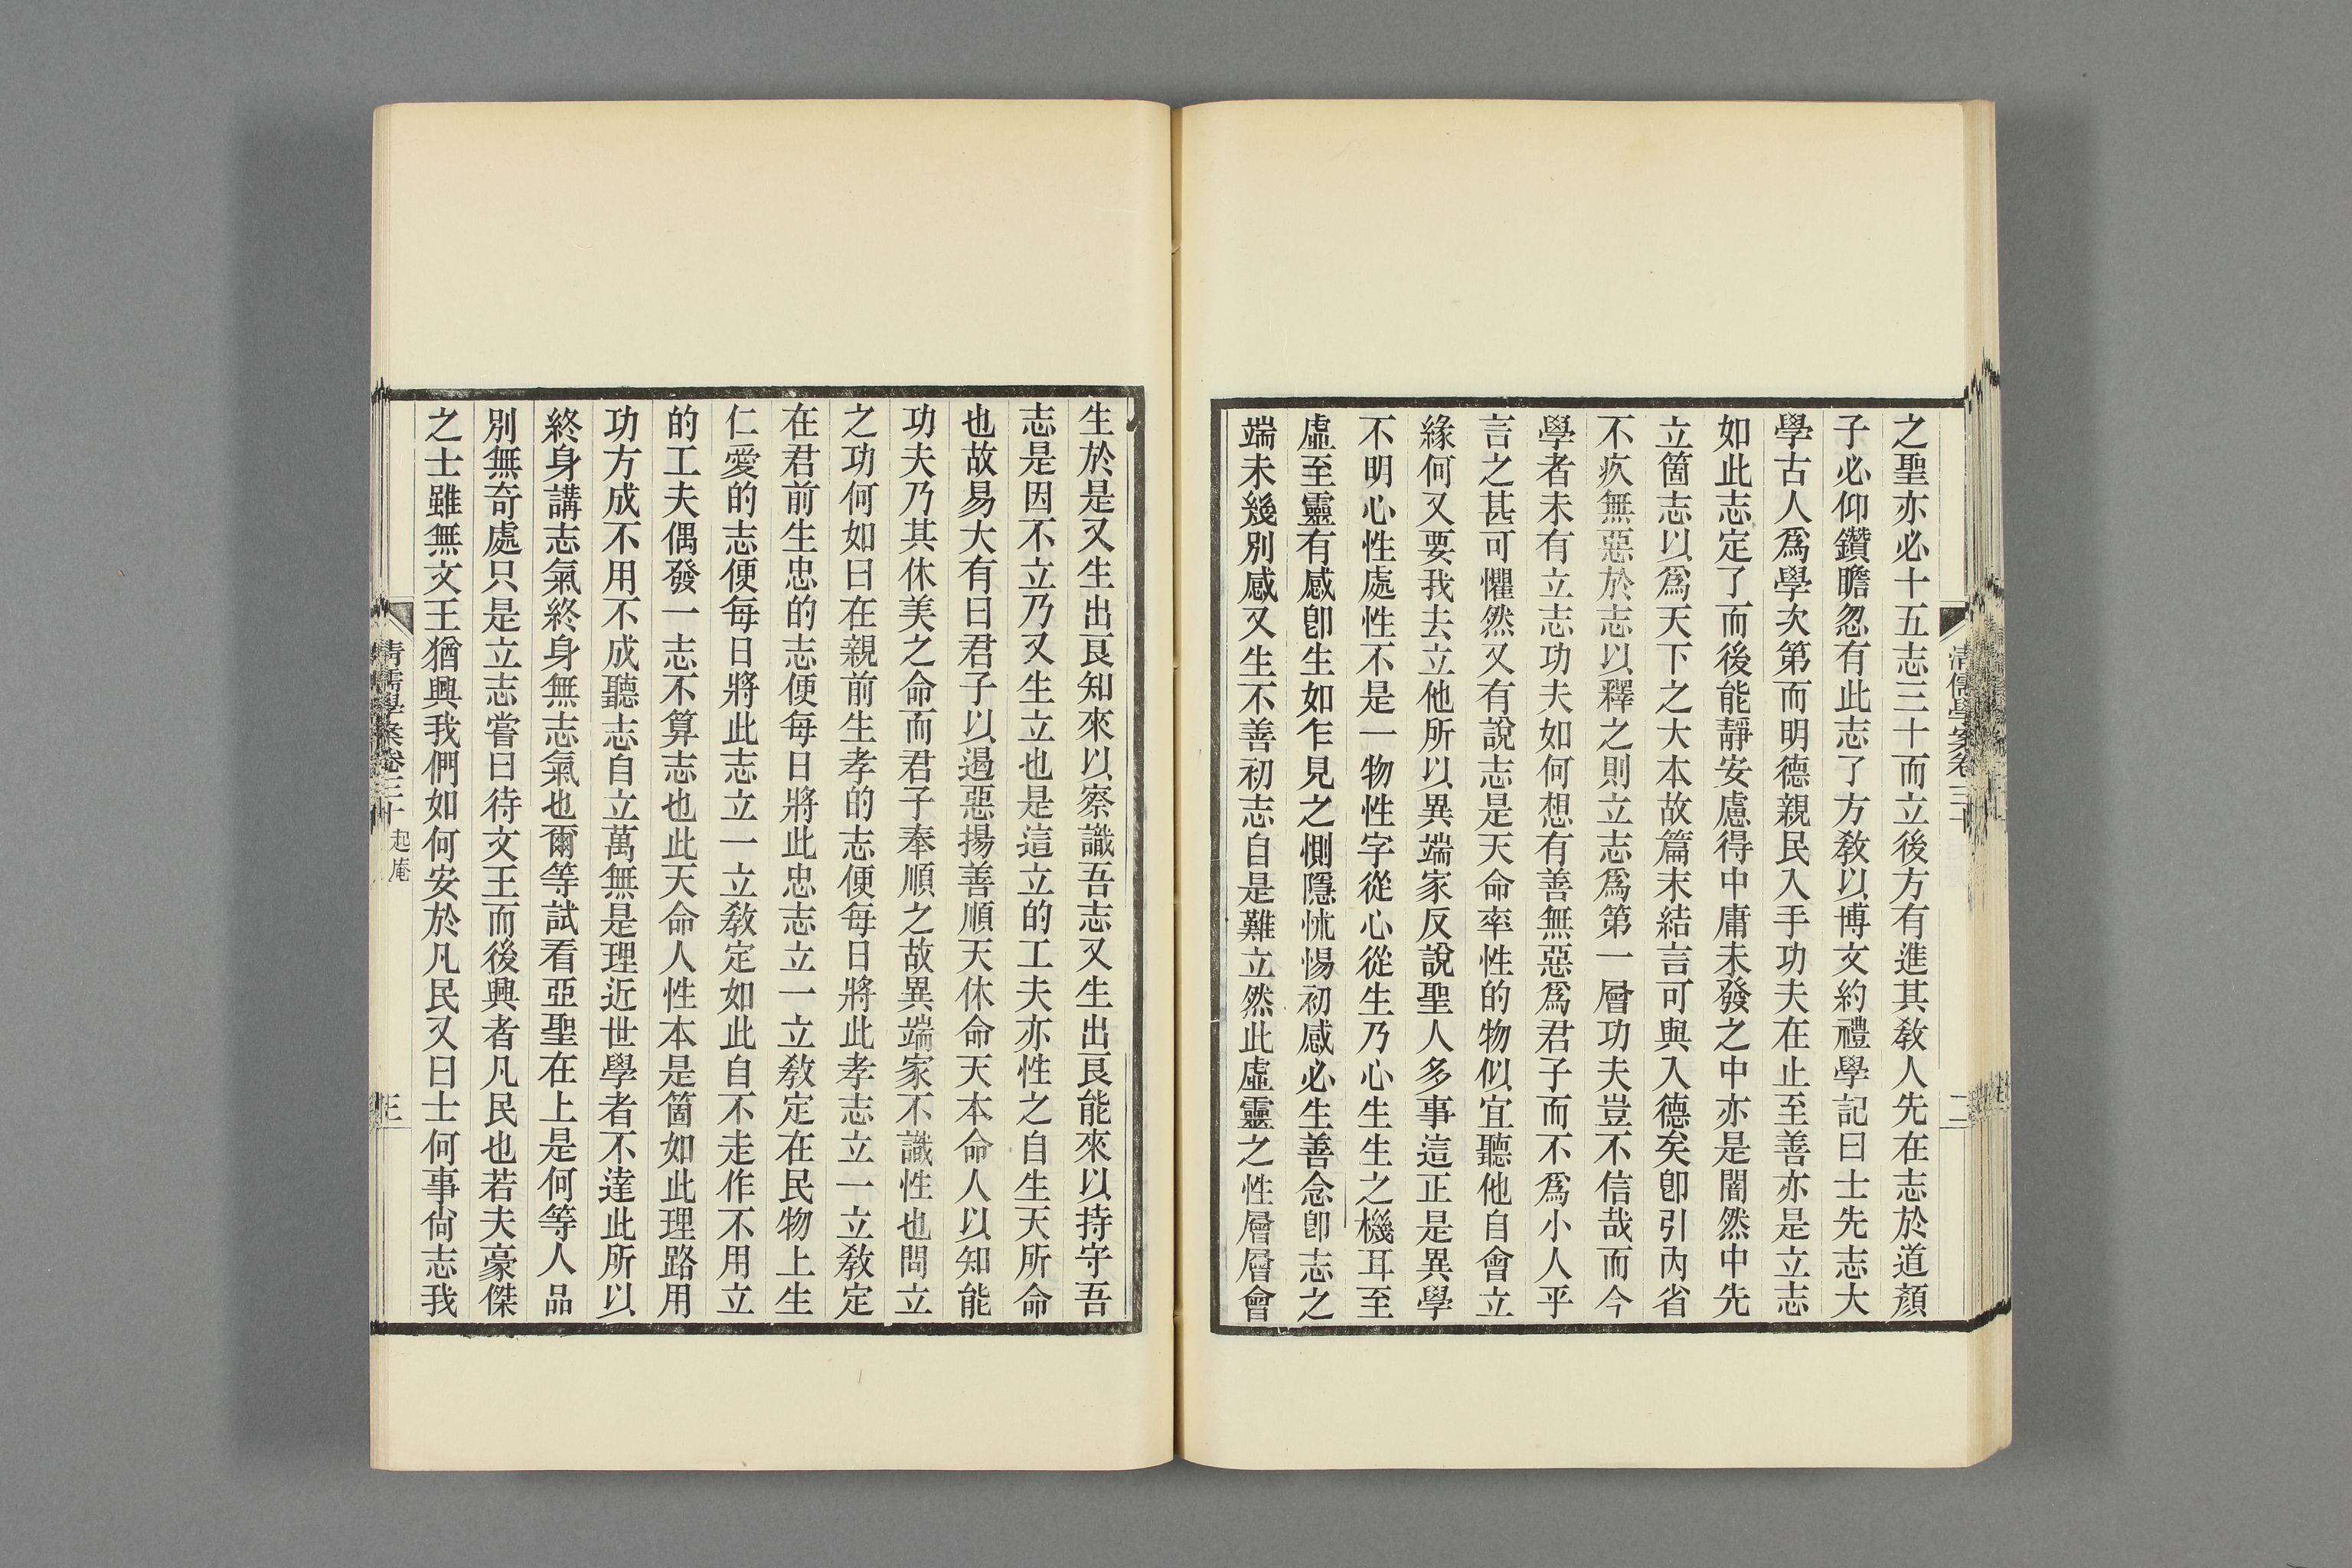 之聖亦必十五志三十而立後方有進其敎人先在志於道顏
子必仰鑽瞻忽有此志了方敎以博文約禮學記曰士先志大
學古人爲學次第而明德親民入手功夫在止至善亦是立志
如此志定了而後能靜安慮得中庸未發之中亦是闇然中先
立箇志以爲天下之大本故篇末結言可與入德矣卽引內省
不疚無惡於志以釋之則立志爲第一層功夫豈不信哉而今
學者未有立志功夫如何想有善無惡爲君子而不爲小人乎
言之甚可懼然又有說志是天命率性的物似宜聽他自會立
緣何又要我去立他所以異端家反說聖人多事這正是異學
不明心性處性不是一物性字從心從生乃心生生之機耳至
虛至靈有感卽生如乍見之惻隱怵惕初感必生善念卽志之
端未幾別感又生不善初志自是難立然此虛靈之性層層會
清儒學案卷三十
二
生於是又生出良知來以察識吾志又生出良能來以持守吾
志是因不立乃又生立也是這立的工夫亦性之自生天所命
也故易大有曰君子以遏惡揚善順天休命天本命人以知能
功夫乃其休美之命而君子奉順之故異端家不識性也問立
之功何如曰在親前生孝的志便每日將此孝志立一立敎定
在君前生忠的志便每日將此忠志立一立敎定在民物上生
仁愛的志便每日將此志立一立敎定如此自不走作不用立
的工夫偶發一志不算志也此天命人性本是箇如此理路用
功方成不用不成聽志自立萬無是理近世學者不達此所以
終身講志氣終身無志氣也爾等試看亞聖在上是何等人品
別無奇處只是立志嘗曰待文王而後興者凡民也若夫豪傑
之士雖無文王猶興我們如何安於凡民又曰士何事尙志我
清儒學案卷三十 起庵
三